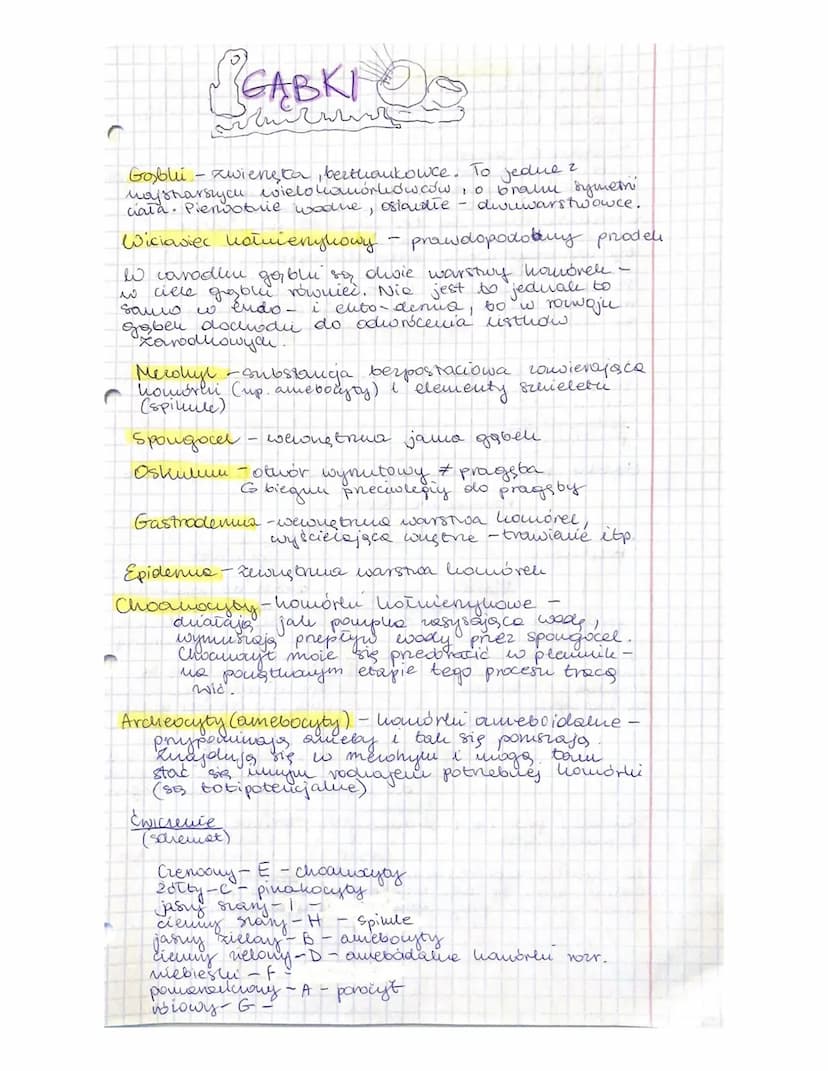 GĄBKI
Gąbki – zwierzęta, beztkankowce. To jedne z
najstarszych wielokomórkowców, o braku symetrii
ciała. Pierwotnie wodne, osiadłe – dwuwarstwowce.
Wiciowiec kołnierzykowy – prawdopodobny przodek
W zarodku gąbki są dwie warstwy komórek –
w ciele gąbki również. Nie jest to jednak to
samo w endo- i ekto-derma, bo w rozwoju
gąbek dochodzi do odwrócenia listków
zarodkowych.
Mezohyl – substancja bezpostaciowa zawierająca
komórki (np. amebocyty) i elementy szkieletu
(spikule)
Spongocel – wewnętrzna jama gąbek
Oskulum – otwór wyrzutowy ≠ pragęba
G biegun przeciwległy do pragęby
Gastroderma – wewnętrzna warstwa komórek,
wyściełająca wnętrze – trawienie itp.
Epiderma – zewnętrzna warstwa komórek
Choanocyty – komórki kołnierzykowe –
działają jak pompka zasysająca wodę,
wymuszają przepływ wody przez spongocel.
Choanocyt może się przeobrazić w plemnik –
na początkowym etapie tego procesu tracą
wić.
Archeocyty (amebocyty) – komórki ameboidalne –
przypominają ameby i tak się poruszają.
Znajdują się w mezohylu i mogą tam
stać się innym rodzajem potrzebnej komórki
(są totipotencjalne)
Ćwiczenie
(schemat)
Czerwony – E – choanocyty
żółty – C – pinakocyty
jasny szary – I –
ciemny szary – H – spikule
jasny zielony – B – amebocyty
ciemny zielony – D – amebodalne komórki rozr.
niebieski – F –
pomarańczowy – A – porocyt
różowy – G –